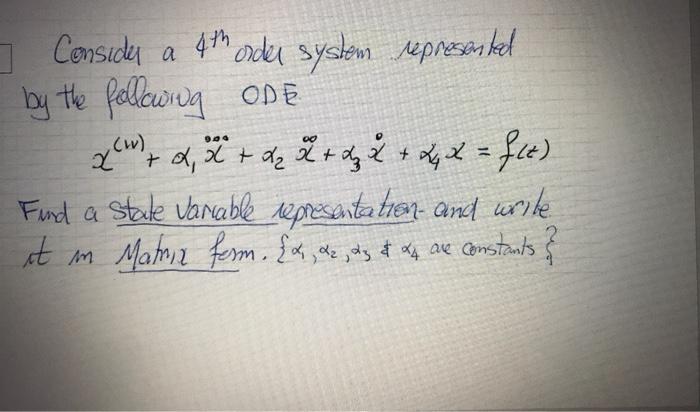 Consider a 4th order system represented
by the following ODE
x⁽ⁱᵛ⁾ + α₁ x⃛ + α₂ ẍ + α₃ ẋ + α₄ x = f(t)
Find a state variable representation and write
it in Matrix form. {α₁, α₂, α₃ & α₄ are constants}